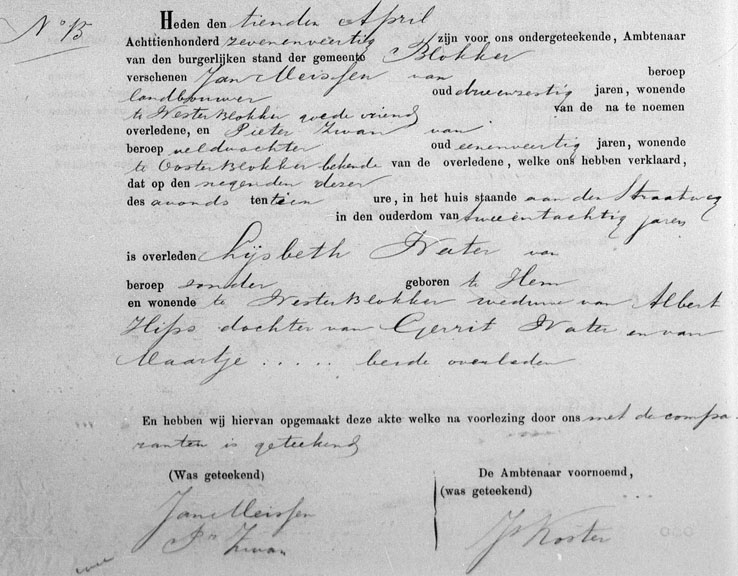 No 13
Heden den tienden April
Achttienhonderd zevenenveertig zijn voor ons ondergeteekende, Ambtenaar
van den burgerlijken stand der gemeente Blokker
verschenen Jan Meissen van beroep
landbouwer oud drieenzestig jaren, wonende
te WesterBlokker goede vriend van de na te noemen
overledene, en Pieter Zwan van
beroep veldwachter oud eenenveertig jaren, wonende
te OosterBlokker bekende van de overledene, welke ons hebben verklaard,
dat op den negenden dezer
des avonds ten tien ure, in het huis staande aan den Straatweg
in den ouderdom van tweeentachtig jaren
is overleden Lijsbeth Water van
beroep zonder geboren te Hem
en wonende te WesterBlokker weduwe van Albert
Hips dochter van Gerrit Water en van
Maartje ..... beide overleden
En hebben wij hiervan opgemaakt deze akte welke na voorlezing door ons met de compa-
ranten is geteekend
(Was geteekend)
De Ambtenaar voornoemd,
(was geteekend)
Jan Meissen
Pr Zwan
Js Koster